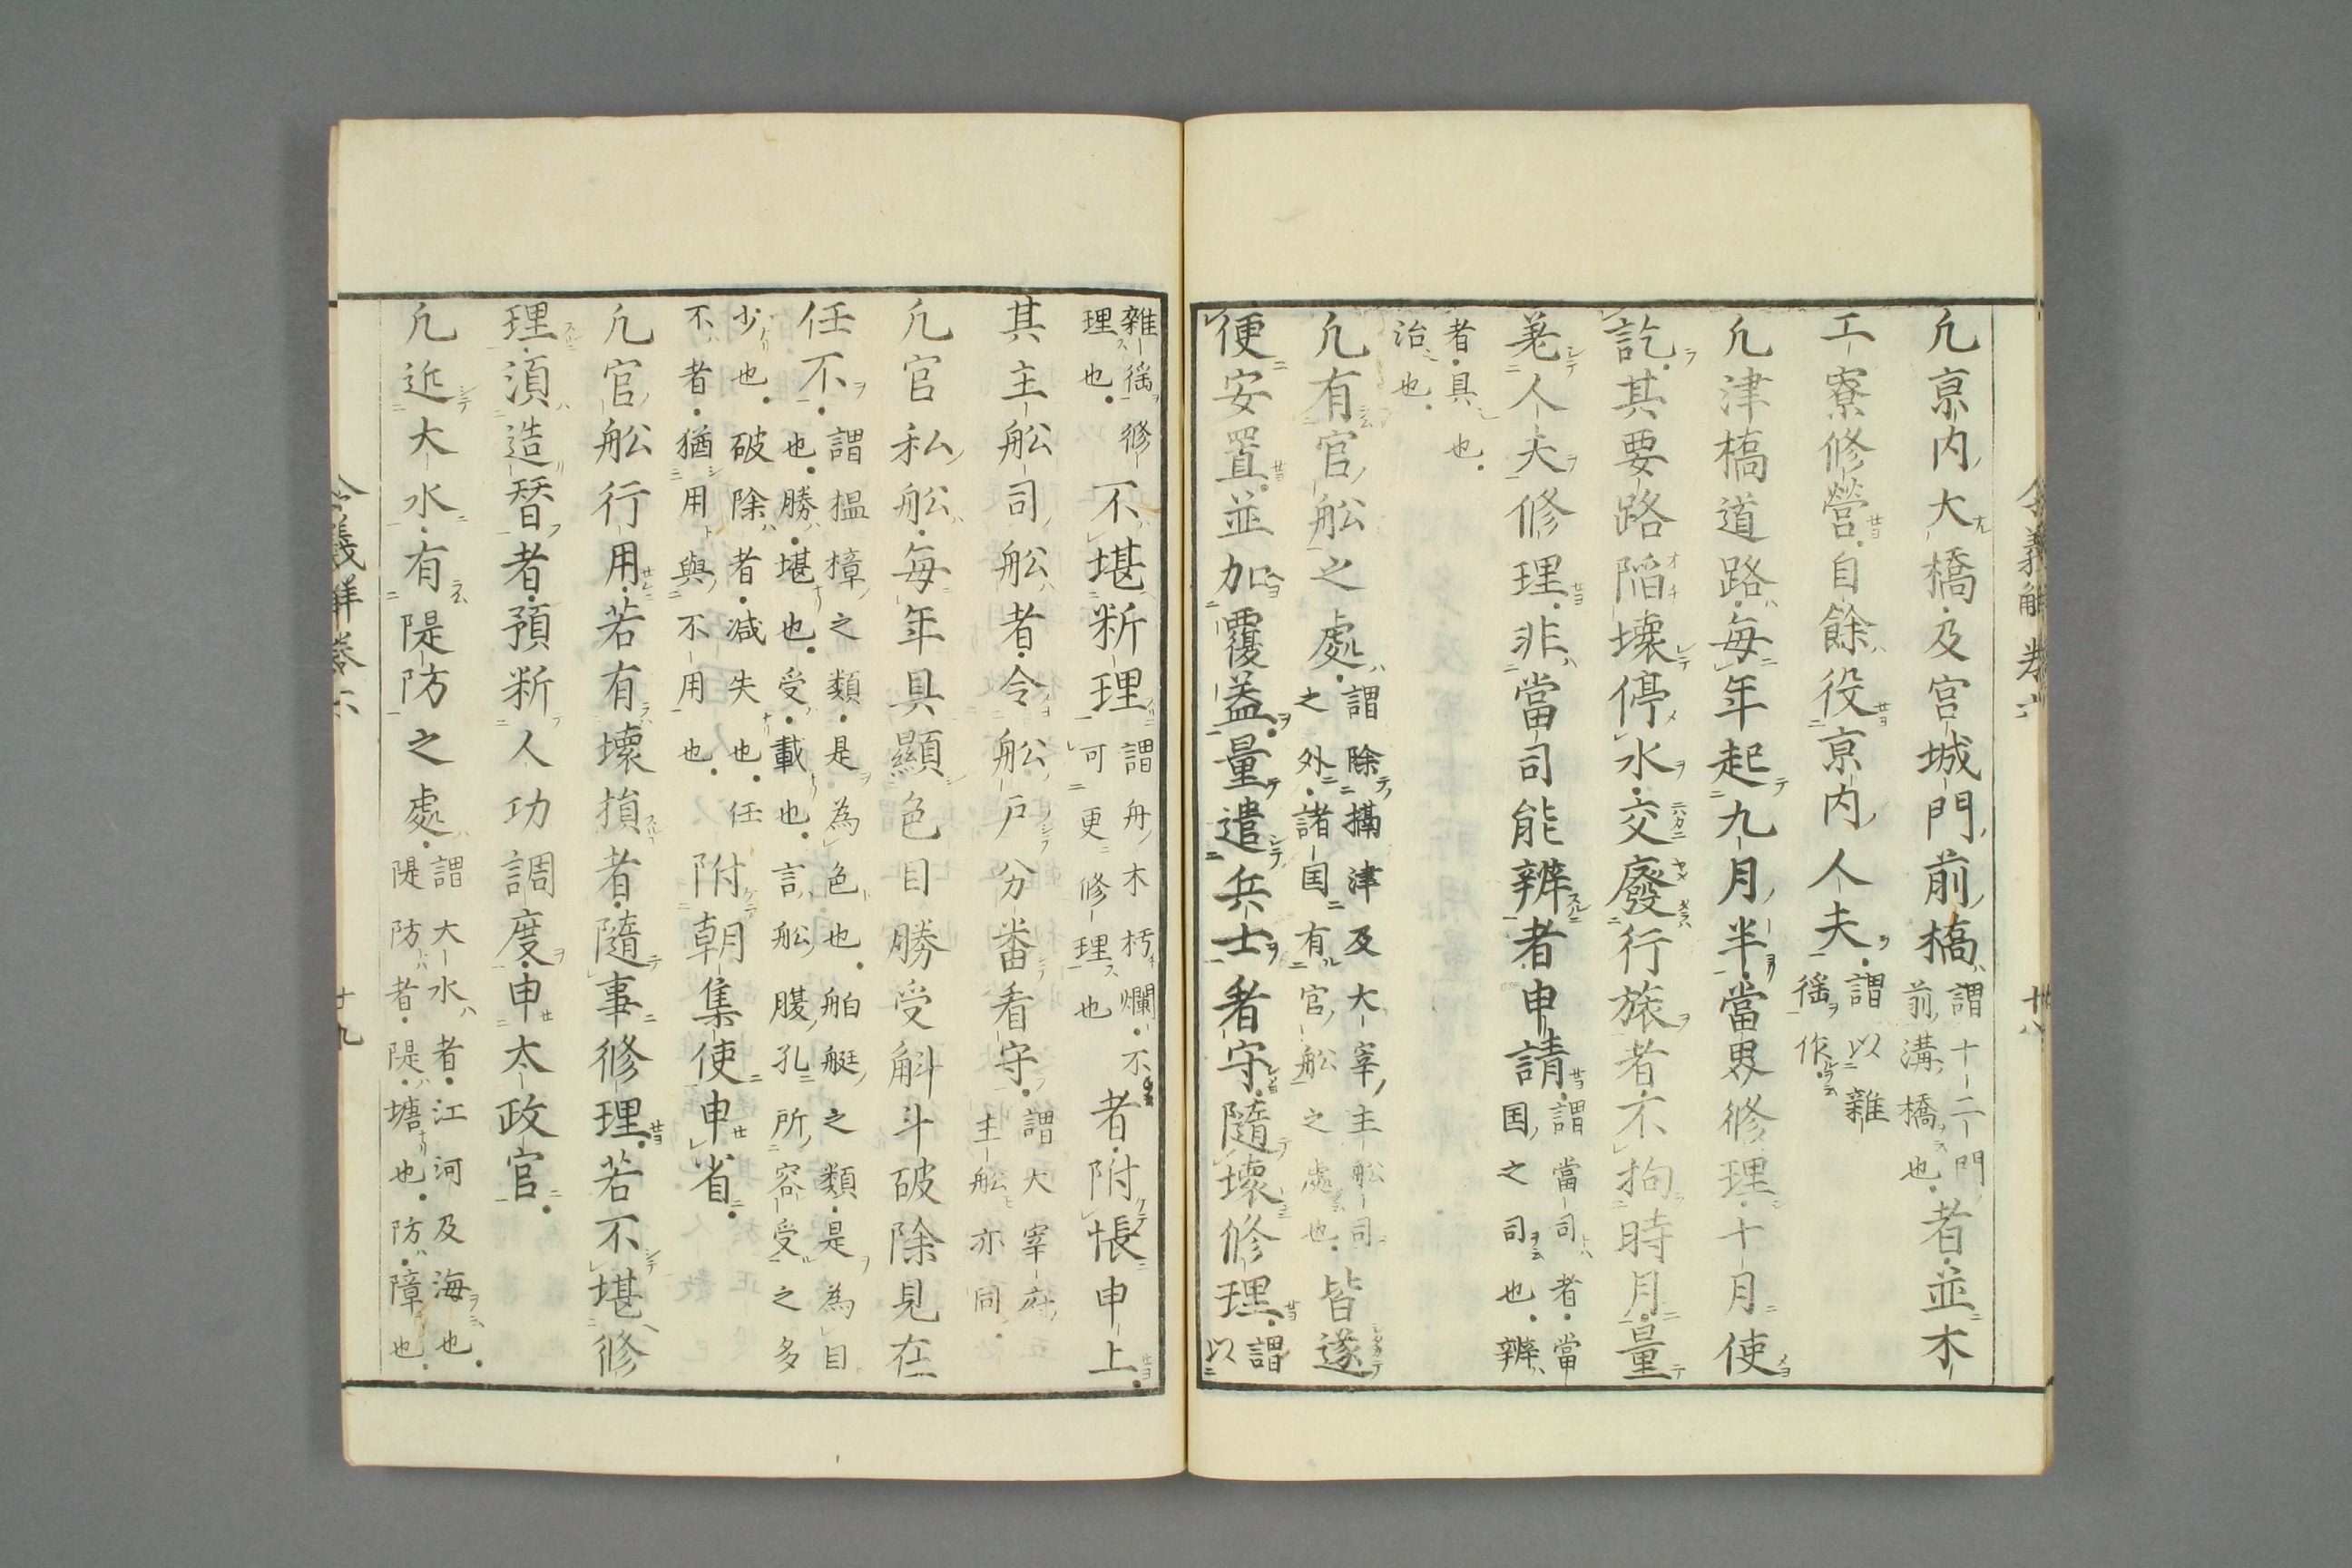 凢京内大橋及宮城門前橋謂十二門前溝橋也者並木
工寮修營自餘役京内人夫謂以雜徭作
凢津橋道路毎年起九月半當界修理十月使
訖其要路陥壊停水交廢行旅者不拘時月量
差人夫修理非當司能辨者申請謂當司者當国之司也辨
者具也治也
凢有官舩之處謂除攝津及大宰主舩司之外諸国有官舩之處也皆遂
便安置並加覆盖量遣兵士者守隨壊修理謂以
雜徭修理也不堪断理謂舟木朽爛不可更修理也者附帳申上
其主舩司舩者令舩戸分番看守謂大宰府主舩亦同
凢官私舩毎年具顯色目勝受斛斗破除見在
任不謂榲樟之類是為色也舶艇之類是為目也勝堪也受載也言舩腹孔所容受之多
少也破除者减失也任不者猶用與不用也附朝集使申省
凢官舩行用若有壊損者隨事修理若不堪修
理湏造替者預断人功調度申太政官
凢近大水有隄防之處謂大水者江河及海也隄防者隄塘也防障也
令義解卷六
十八
十九